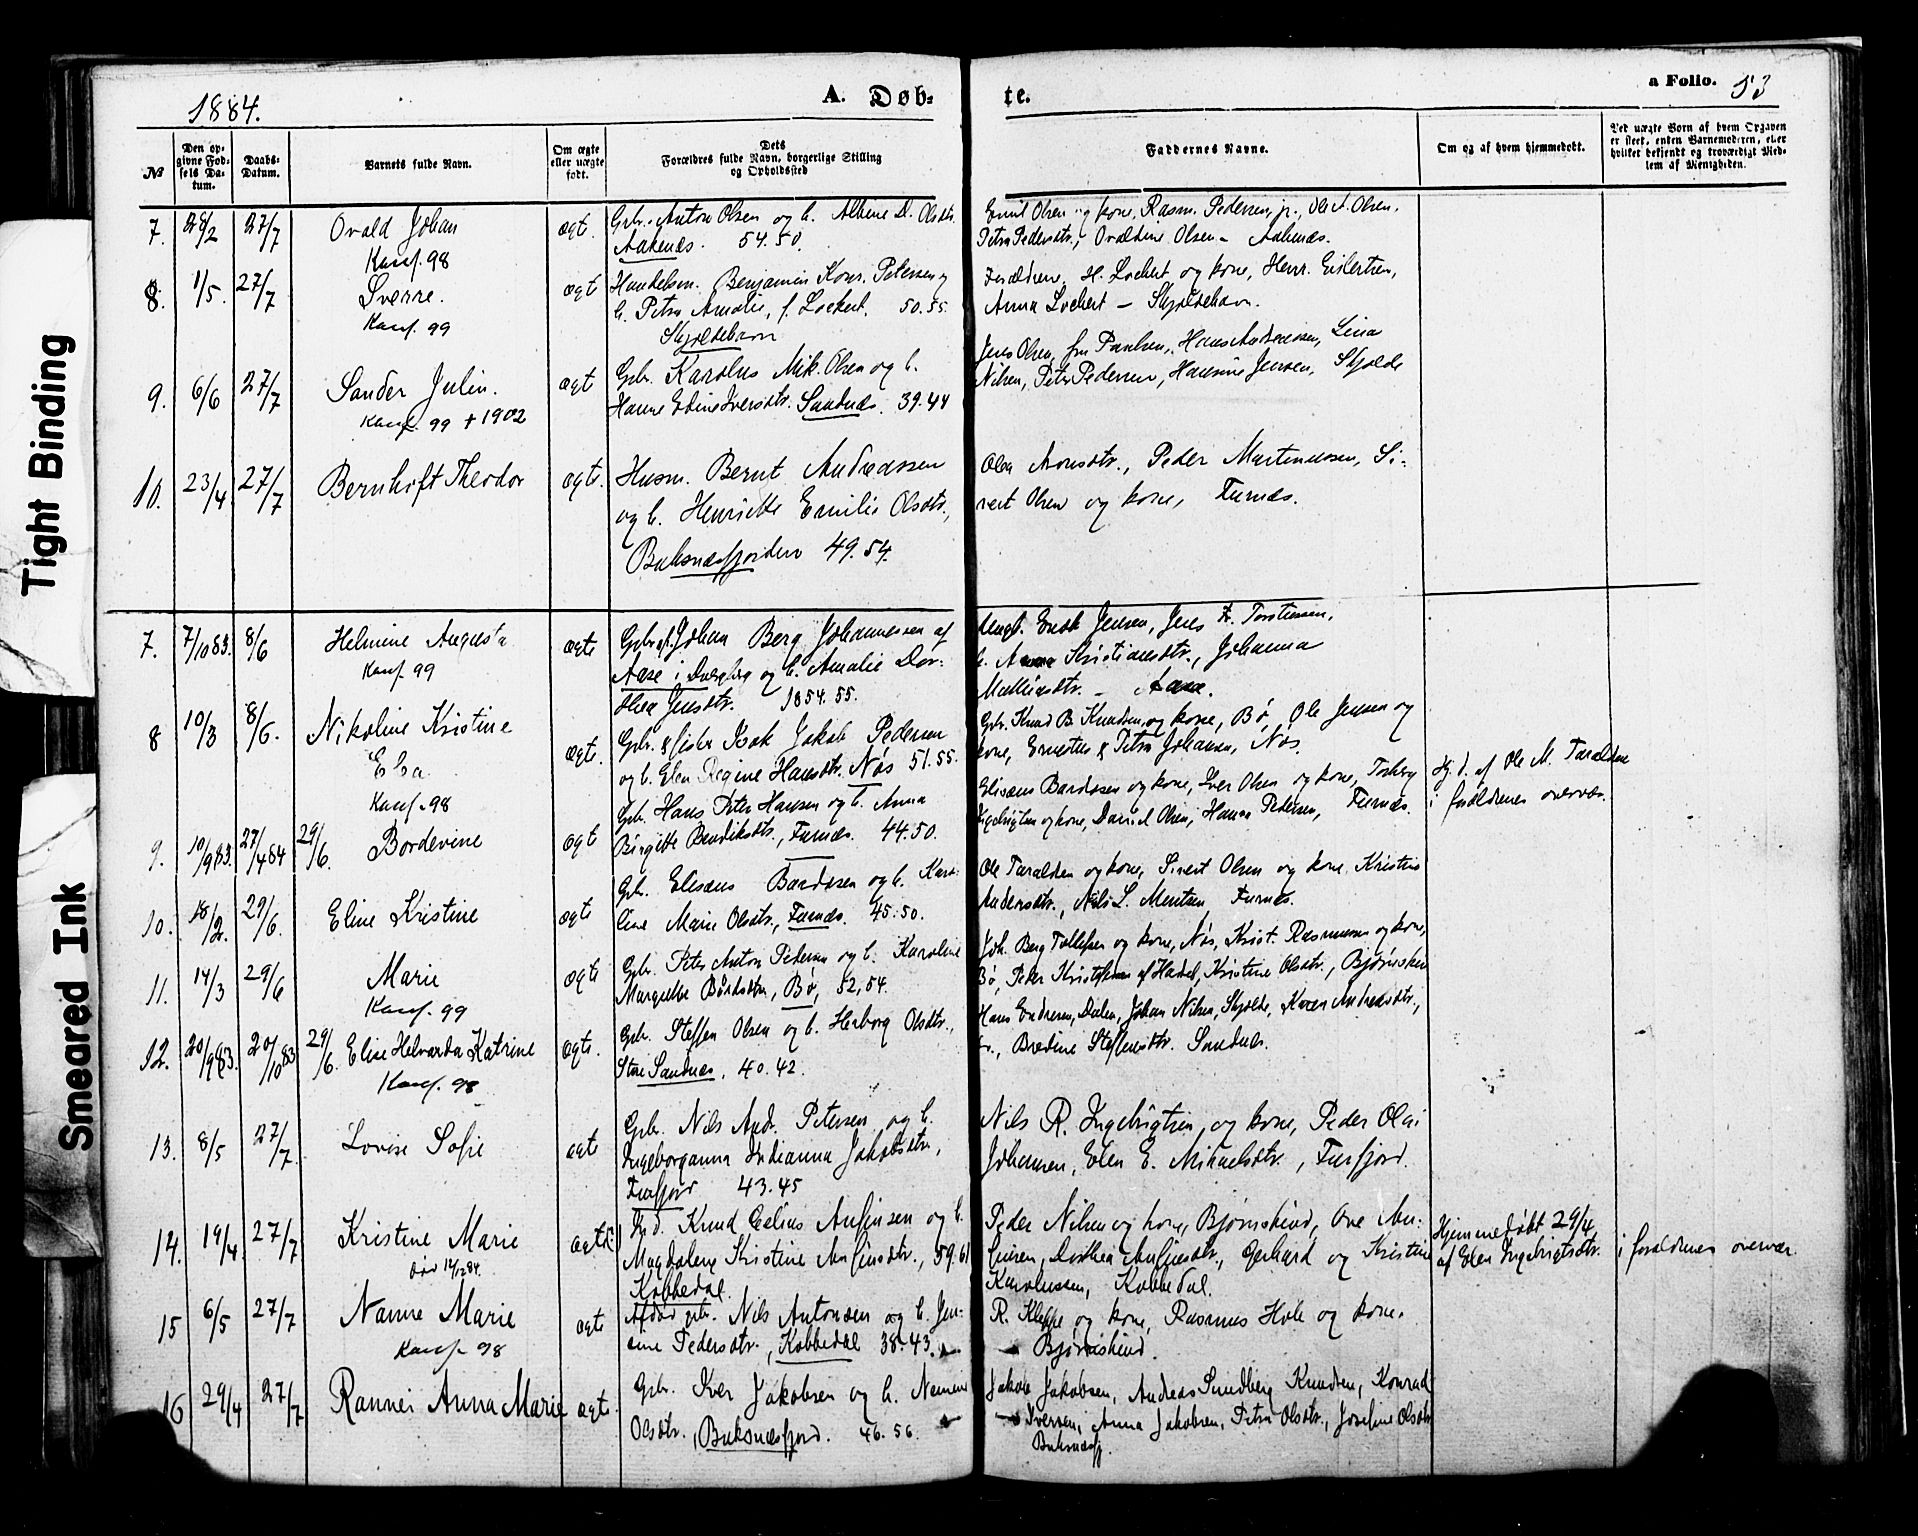 1884.
A. Døb-
te.
a Folio. 53
№
Den op-
givne Fød-
sels Da-
tum.
Daabs-
Datum.
Barnets fulde Navn.
Om ægte
eller uægte
født.
Dets
Forældres fulde Navn, borgerlige Stilling
og Opholdssted
Faddernes Navne.
Om og af hvem hjemmedøbt.
Ved uægte Børn af hvem Opgaven
er skeet, enten Barnemoderen, eller
hvilket bekjendt og troværdigt Med-
lem af Menigheden.
7. 28/2 27/7 Ovald Johan ægt.
Konf. 98
Gbr. Anton Olsen og h. Albine D. Olsdtr.
Aakenæs. 54.50.
Emil Olsen og kone, Rasm. Pedersen, jr., Ole A. Olsen,
Petra Pedersdtr., Ovaldine Olsen - Aakenæs.
8. 1/5. 27/7 Sverre. ægt
Konf. 99
Handelsm. Benjamin Konr. Petersen og
h. Petra Amalie, f. Lockert, 50.55.
Skjoldehavn
Forældrene, H. Lockert og kone, Henr. Eilertsen,
Anna Lockert - Skjoldehavn.
9. 6/6 27/7 Sander Julin. ægt
Konf. 99 + 1902
Gbr. Karolus Mik. Olsen og h.
Hanne Edine Iversdtr. Sandnæs. 39.44
Jens Olsen, fru Paulsen, Hans Andreassen, Lina
Nilsen, Peter Pedersen, Hansine Jensen, Skjolde
10. 23/4 27/7 Bernhoft Theodor ægt.
Husm. Bernt Andreassen
og h. Henriette Emilie Olsdtr.,
Buksnæsfjorden 49.54.
Olea Aronsdtr., Peder Martinussen, Si-
vert Olsen og kone, Furnæs.
7. 7/10 83. 8/6 Helmine Augusta ægte
Konf. 99
Gbr. Johan Berg Johannessen af
Aase i Dverberg og h. Amalie Dor-
thea Jensdtr. 1854.55.
Ungk. Enok Jensen, Jens Z. Torstensen,
h. Anna Kristiansdtr., Johanna
Mathiasdtr. - Aase.
8 10/3 8/6. Nikoline Kristine ægt.
Elsa
Konf. 98
Gbr. & fisker Isak Jakob Pedersen
og h. Elen Regine Hansdtr. Nøs 51.55.
Gbr. Knud B. Knudsen og kone, Bø, Ole Jensen og
kone, Ernestus & Petra Johansen, Nøs.
9. 10/9 83. 27/4 84 29/6. Bordevine ægt
Gbr. Hans Peter Hansen og h. Anna
Birgitte Bendiksdtr., Furnæs. 44.50.
Elisæus Bardosen og kone, Iver Olsen og kone, Torberg
Ingebrigtsen og kone, Daniel Olsen, Hanna Pedersen, Furnæs.
Hj. d. af Ole M. Taraldsen
i forældrenes overvær.
10. 18/2. 29/6. Eline Kristine ægt
Gbr. Elisæus Bardosen og h. Karo-
line Marie Olsdtr., Furnæs. 45.50.
Ole Taraldsen og kone, Sivert Olsen og kone, Kristine
Andersdtr., Nils L. Mentsen Furnæs.
11. 14/3 29/6 Marie ægte
Konf. 99
Gbr. Peter Anton Pedersen og h. Karoline
Margrethe Bårdsdtr., Bø, 52,54.
Joh. Berg Tollefsen og kone, Nøs, Krist. Rasmussen og kone,
Bø, Peder Kristofersen af Hadsel, Kristine Olsdtr., Bjørnskin
12. 20/9 83. 20/10 83 29/6. Elise Helvarda Katrine ægte.
Konf. 98
Gbr. Steffen Olsen og h. Herborg Olsdtr.,
Store Sandnæs, 40.42.
Hans Endresen, Dalen, Johan Nilsen, Skjolde, Karen Andreasdtr.,
Bredine Steffensdtr. Sandnæs.
13. 8/5 27/7. Lovise Sofie ægte
Gbr. Nils Andr. Petersen og h.
Ingeborganna Indianna Jakobsdtr.,
Furfjord 43.45
Nils R. Ingebrigtsen og kone, Peder Olai
Johansen, Elen E. Mikaelsdtr., Furfjord.
14. 19/4 27/7 Kristine Marie ægte
død 14/12 84.
Ind. Knud Celius Anfinsen og h.
Magdalene Kristine Anfinsdtr., 59.61
Kobbedal.
Peder Nilsen og kone, Bjørnskind, Ove An-
finsen, Dorthea Anfinsdtr., Gerhard og Kristine
Karolussen, Kobbedal.
Hjemmedøbt 29/4
af Elen Ingebrigtsdtr. i forældrenes overvær.
15 6/5 27/7 Nanne Marie ægte
Konf. 98
Afdød gbr. Nils Antonsen og h. Jen-
sine Pedersdtr., Kobbedal 38.43.
R. Kleppe og kone, Rasmus Hole og kone.
Bjørnskind.
16 29/4 27/7 Rannei Anna Marie ægte.
Gbr. Iver Jakobsen og h. Nennine
Olsdtr., Buksnæsfjord. 46.56
Jakob Jakobsen, Andreas Sundberg Knudsen, Konrad
Iversen, Anna Jakobsen, Petra Olsdtr., Josefine Olsdtr.
Buksnæsfj.
Tight Binding
Smeared Ink